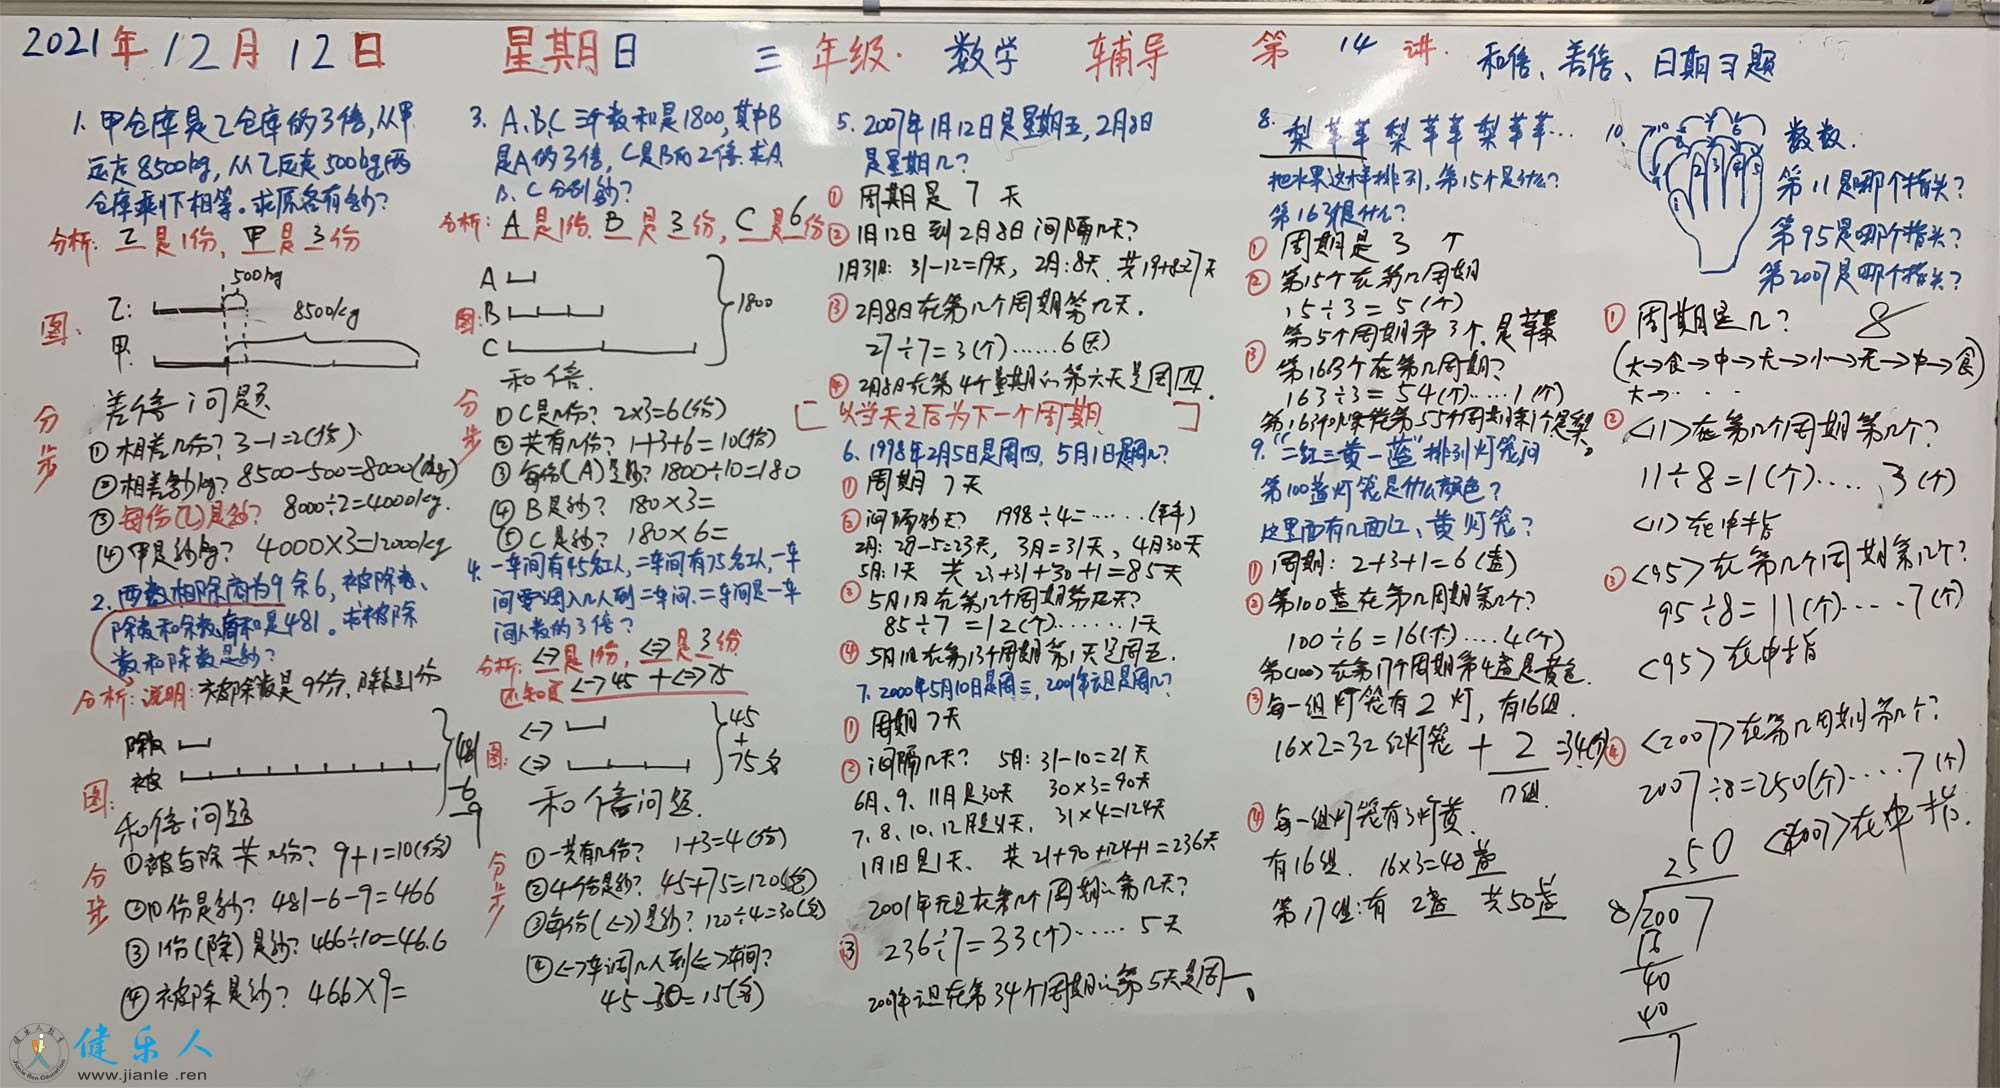 2021年12月12日 星期日 三年级. 数学 辅导 第14讲. 和倍、差倍、日期习题
1. 甲仓库是乙仓库的3倍,从甲
运走8500kg,从乙运走500kg,两
仓库剩下相等。求原各有多少?
分析: 乙是1份, 甲是3份
图:
500kg
乙:
8500kg
甲:
差倍问题
分步
①相差几份? 3-1=2(份)
②相差多少kg? 8500-500=8000(kg)
③每份(乙)是多少? 8000÷2=4000kg.
④甲是多少kg? 4000×3=12000kg
2. 两数相除商为9余6, 被除数、
除数和余数商和是481。求被除
数和除数是多少?
分析: 说明: 被除数是9份,除数是1份
图:
除数
被
481
-6
-9
和倍问题
分步
①被与除共几份? 9+1=10(份)
②10份是多少? 481-6-9=466
③1份(除)是多少? 466÷10=46.6
④被除是多少? 466×9=
3. A、B、C三个数和是1800,其中B
是A的3倍, C是B的2倍.求A、
B、C分别多少?
分析: A是1份. B是3份, C是6份
图:
A
B
C
1800
和倍.
分步
①C是几份? 2×3=6(份)
②共有几份? 1+3+6=10(份)
③每份(A)是多少? 1800÷10=180
④B是多少? 180×3=
⑤C是多少? 180×6=
4. 一车间有45名工人,二车间有75名工人,一车
间要调入几人到二车间.二车间是一车
间人数的3倍?
分析: <一>是1份, <二>是3份
还知道 <一>45 + <二>75
图:
<一>
<二>
45
+
75名
和倍问题.
分步
①一共有几份? 1+3=4(份)
②4份是多少? 45+75=120(名)
③每份(<一>)是多少? 120÷4=30(名)
④<一>车调几人到<二>车间?
45-30=15(名)
5. 2007年1月12日是星期五,2月8日
是星期几?
① 周期是 7 天
② 1月12日到2月8日间隔几天?
1月31日: 31-12=19天, 2月:8天. 共19+8=27天
③ 2月8日在第几个周期第几天.
27÷7=3(个)......6(天)
④ 2月8日在第4个星期的第六天是周四.
[以当天之后为下一个周期]
6. 1998年2月5日是周四, 5月1日是周几?
① 周期 7天
② 间隔多少天? 1998÷4=......(平年)
2月: 28-5=23天, 3月=31天, 4月30天
5月:1天 共 23+31+30+1=85天
③ 5月1日在第几个周期第几天?
85÷7=12(个)......1天
④ 5月1日在第13个周期第1天是周五.
7. 2000年5月10日是周三, 2001年元旦是周几?
① 周期 7天
② 间隔几天? 5月: 31-10=21天
6月、9、11月是30天 30×3=90天
7、8、10、12月是31天, 31×4=124天
1月1日是1天. 共 21+90+124+1=236天
2001年元旦在第几个周期的第几天?
③ 236÷7=33(个)..... 5天
2001年元旦在第34个周期的第5天是周一。
8. 梨苹苹 梨苹苹 梨苹苹...
把水果这样排列,第15个是什么?
第163个是什么?
① 周期是 3 个
② 第15个在第几周期
15÷3=5(个)
第5个周期第3个,是苹果
③ 第163个在第几周期?
163÷3=54(个).....1(个)
第163个水果在第55个周期第1个是梨。
9. “二红三黄一蓝”排列灯笼问
第100盏灯笼是什么颜色?
这里面有几面红、黄灯笼?
① 周期: 2+3+1=6(盏)
② 第100盏在第几周期第几个?
100÷6=16(个)....4(个)
第<100>在第17个周期第4盏是黄色.
③ 每一组灯笼有2灯, 有16组.
16×2=32红灯笼 + 2 =34(个)
17组.
④ 每一组灯笼有3灯黄.
有16组. 16×3=48盏
第17组:有 2盏 共50盏
10.
数数.
第11是哪个指头?
第95是哪个指头?
第2007是哪个指头?
① 周期是几? 8
(大→食→中→无→小→无→中→食)
大→...
② <11>在第几个周期第几个?
11÷8=1(个).... 3(个)
<11>在中指
③ <95>在第几个周期第几个?
95÷8=11(个)....7(个)
<95>在中指
④ <2007>在第几周期第几个?
2007÷8=250(个)....7(个)
<2007>在中指.
250
8 2007
16
40
40
7
健乐人
www.jianle.ren